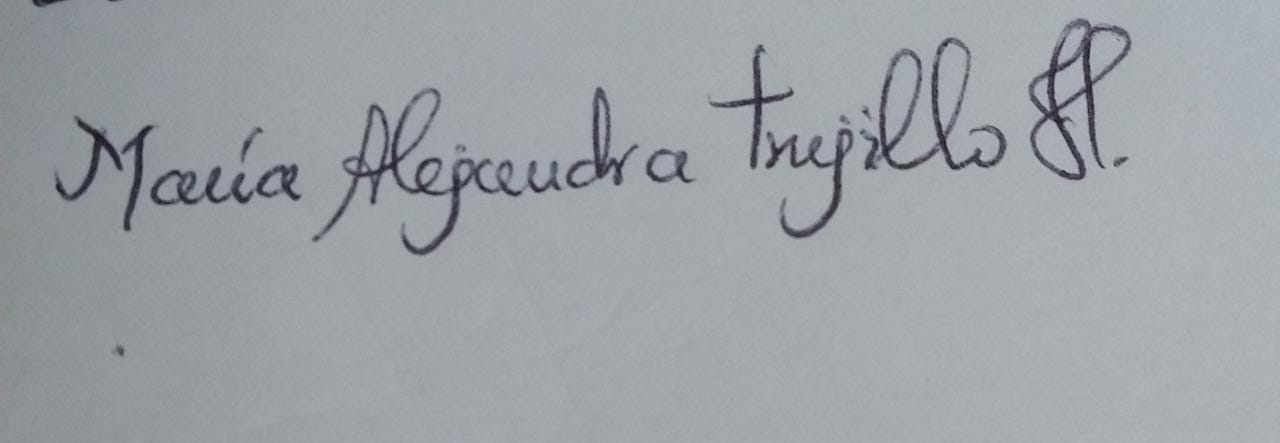 María Alejandra Trujillo H.